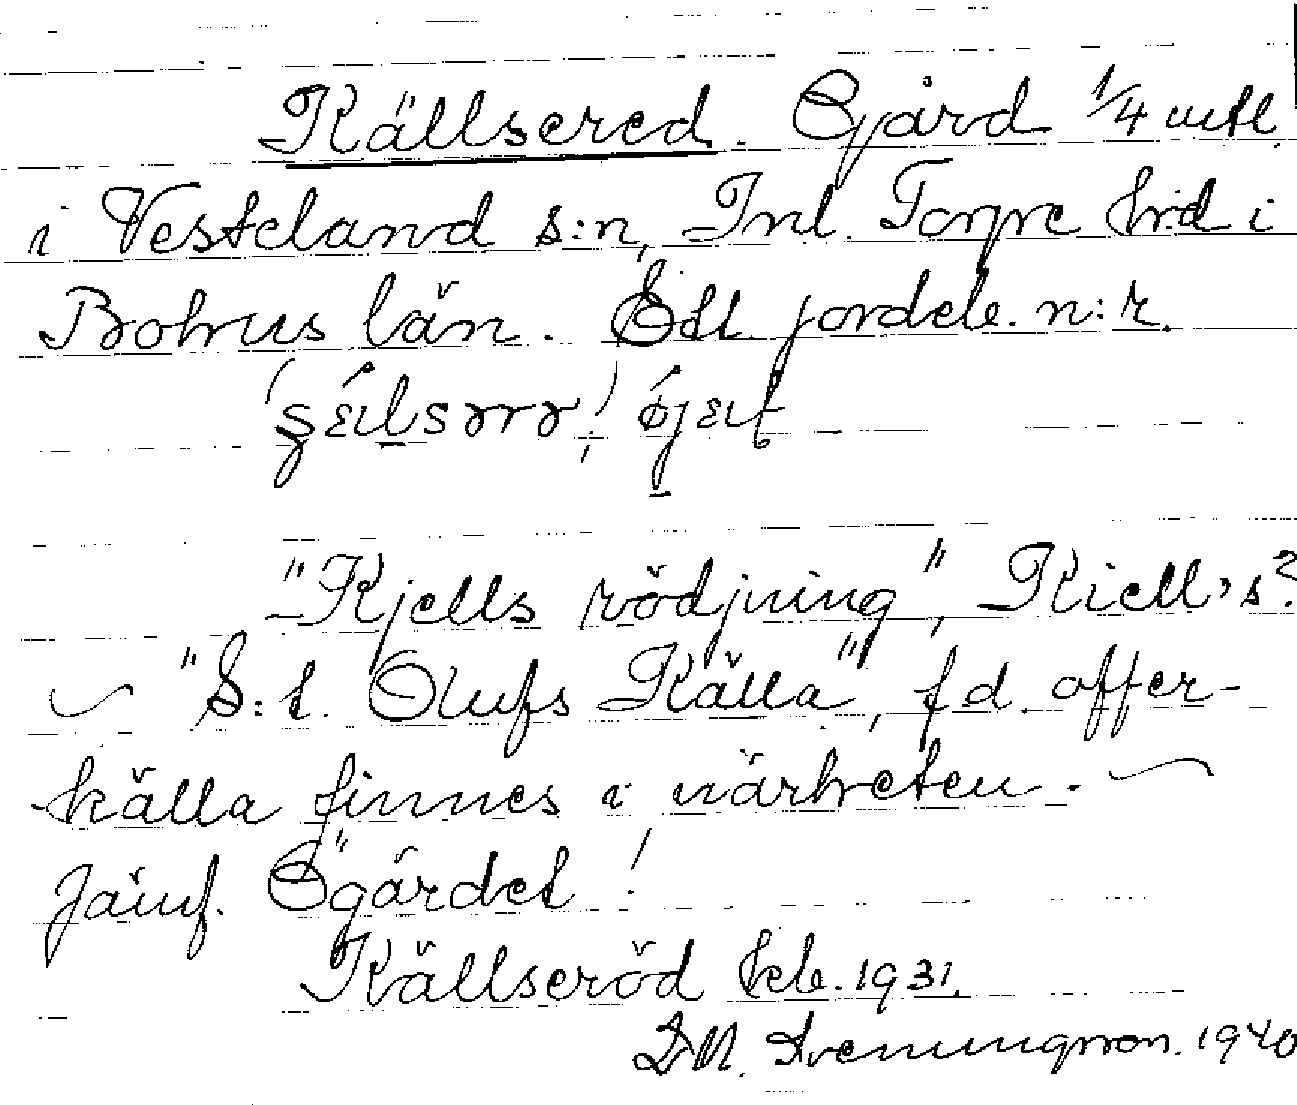 Källsered. Gård 1/4 mtl
i Vesteland s:n, Inl. Torpe hrd i
Bohus län. Enl. jordeb. n:r.
"Kjells rödjning", Kiell's?
"S:t. Olufs Källa", f d. offer-
källa finnes i närheten.
Jämf. Ögärdet!
Källseröd kb. 1931.
D M. Svenungsson. 1940